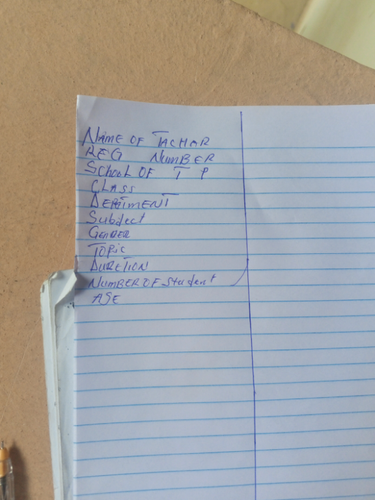 NAME OF TACHAR
REG NUMBER
SCHOOL OF T P
CLASS
DEARTMENT
Subject
GENDER
TOPIC
DURCTION
NUMBER OF Student
AGE